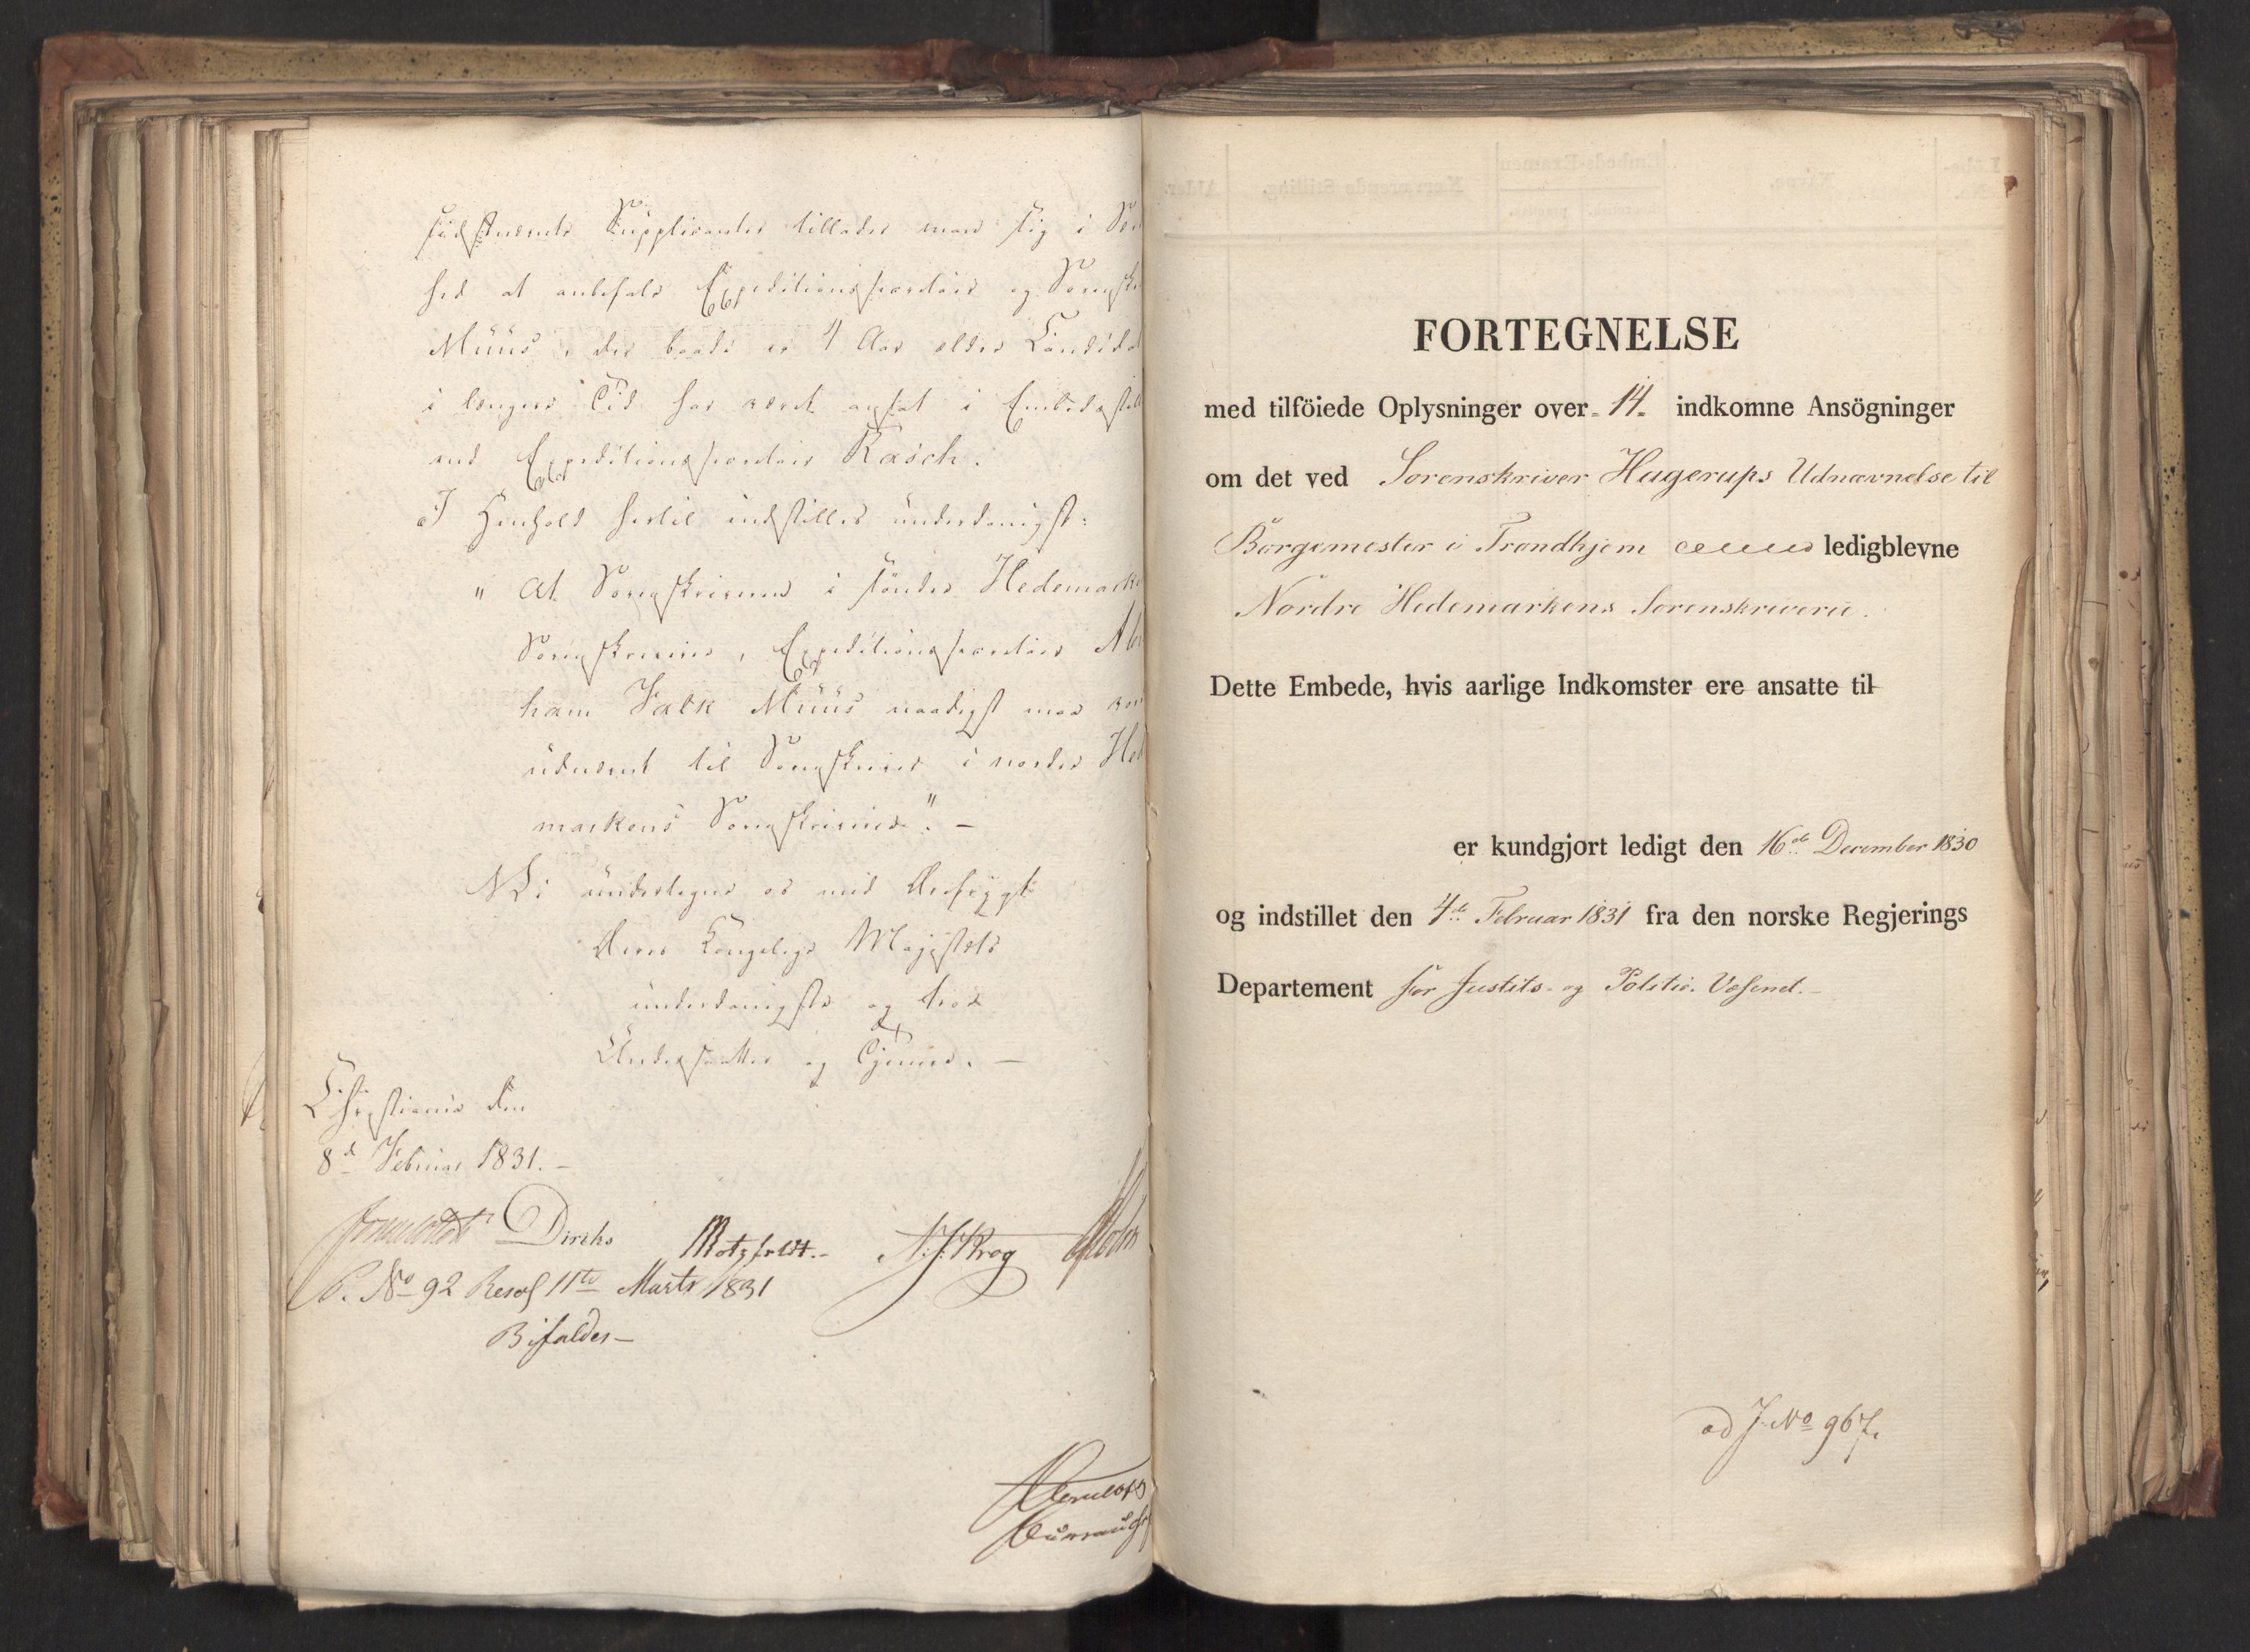 sidstnævnte Supplicanter tillader man sig i Sær
hed at anbefale Expeditionssecretair og Sorenskr
Müüs, der baade er 4 Aar ældre Candidat
i længere Tid har været ansat i Embedsstill
end Expeditionssecretair Rasch.
I Henhold hertil indstilles underdanigst:
" At Sorenskriveren i søndre Hedemarke
Sorenskriverie, Expeditionssecretair Abr
ham Falk Müüs naadigst maa vor
udnævnt til Sorenskriver i nordre Hed
markens Sorenskriverie". —
Vi undertegne os med Ærefrygt
Deres Kongelige Majestæts
underdanigste og troe
Undersaatter og Tjenere. —
Christiania den
8de Februar 1831. —
Diriks Motzfeldt. N. J. Krog
P. No 92 Resol 11te Marts 1831
Bifaldes —
FORTEGNELSE
med tilföiede Oplysninger over 14 indkomne Ansögninger
om det ved Sorenskriver Hagerups Udnævnelse til
Borgemester i Trondhjem ledigblevne
Nordre Hedemarkens Sorenskriverie.
Dette Embede, hvis aarlige Indkomster ere ansatte til
er kundgjort ledigt den 16de December 1830
og indstillet den 4de Februar 1831 fra den norske Regjerings
Departement for Justits- og Politie-Væsenet. —
ad J No 967.